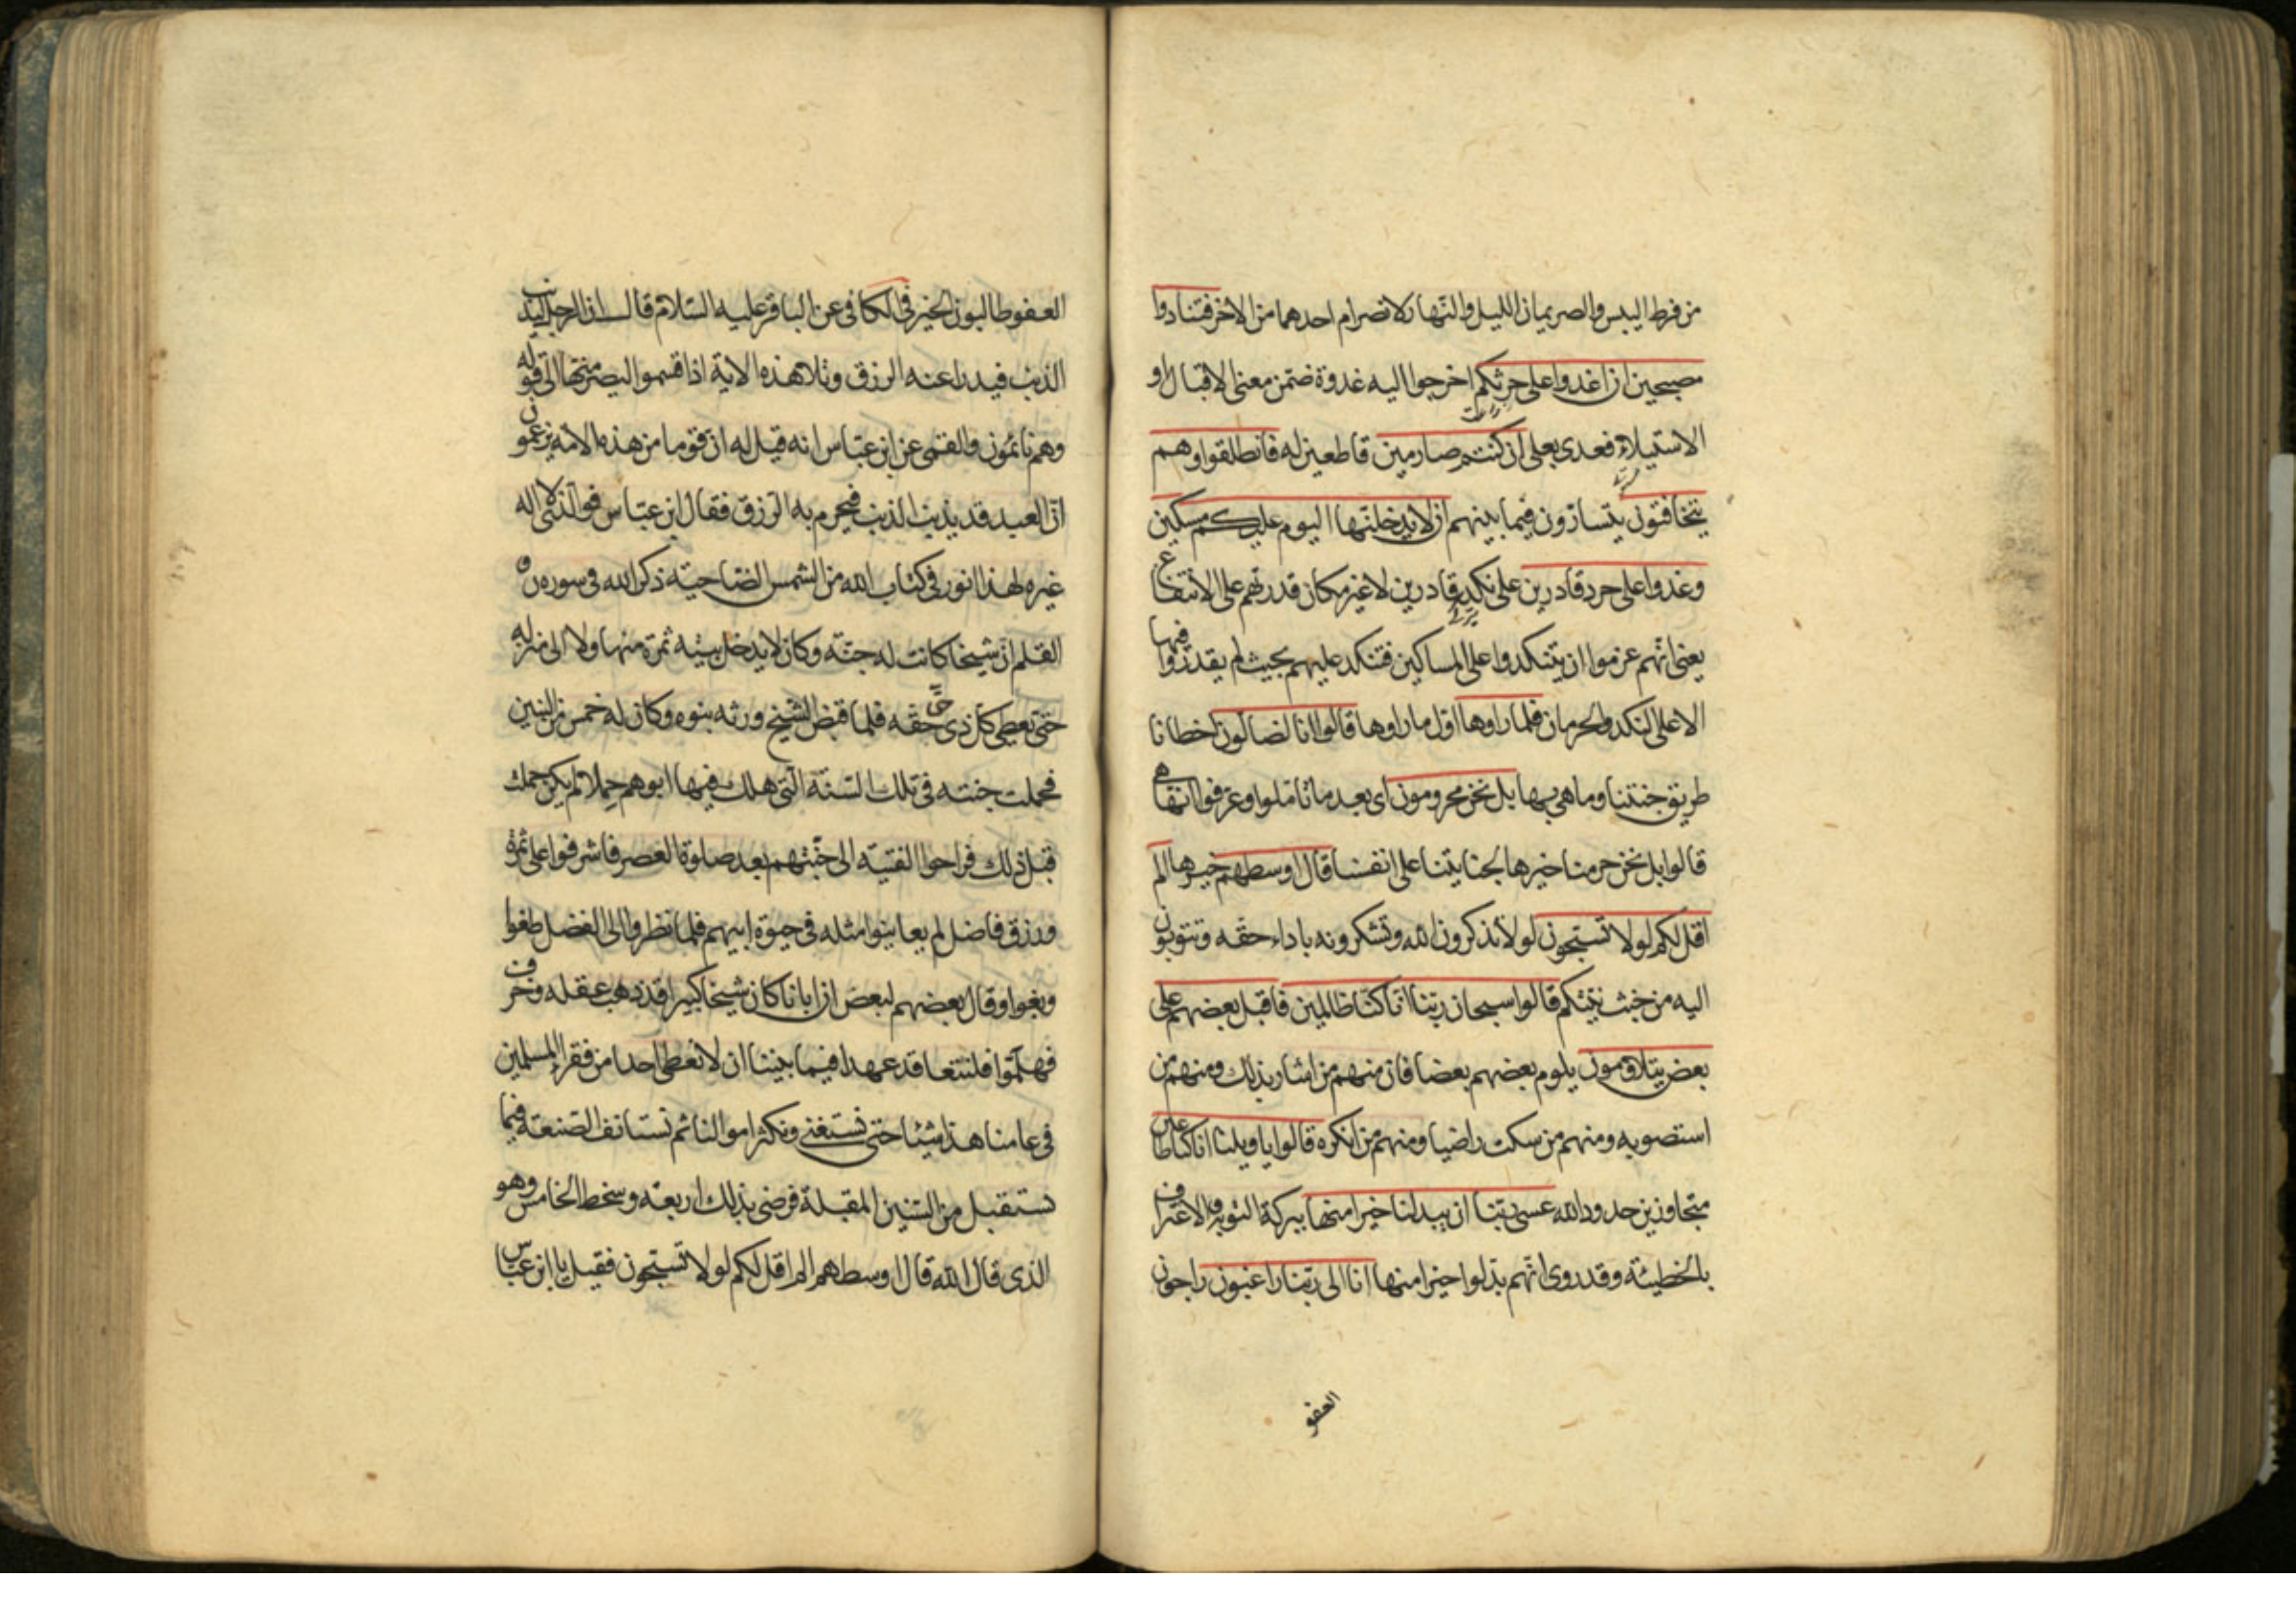 من فرط اليبس والصريمان الليل والنهار لانصرام احدهما من الاخر فتنادوا
مصبحين ان اغدوا على حرثكم اخرجوا اليه غدوة ضمن معنى الاقبال او
الاستيلاء فعدى بعلى ان كنتم صارمين قاطعين له فانطلقوا وهم
يتخافتون يتسارّون فيما بينهم ان لا يدخلنها اليوم عليكم مسكين
وغدوا على حرد قادرين على نكد قادرين لا غير مكان قدرتهم على الانتفاع
يعنى انهم عزموا ان يتنكدوا على المساكين فتنكد عليهم بحيث لم يقدروا فيها
الا على النكد والحرمان فلما راوها اول ما راوها قالوا انا لضالون اخطانا
طريق جنتنا وما هى بها بل نحن محرومون اى بعد ما تاملوا وعرفوا انها هى
قالوا بل نحن حرمنا خيرها لجنايتنا على انفسنا قال اوسطهم خيرهم الم
اقل لكم لولا تسبحون لولا تذكرون الله وتشكرونه باداء حقه وتتوبون
اليه من خبث نيتكم قالوا سبحان ربنا انا كنا ظالمين فاقبل بعضهم على
بعض يتلاومون يلوم بعضهم بعضا فان منهم من اشار بذلك ومنهم من
استصوبه ومنهم من سكت راضيا ومنهم من انكره قالوا يا ويلنا انا كنا طاغين
متجاوزين حدود الله عسى ربنا ان يبدلنا خيرا منها ببركة التوبة والاعتراف
بالخطيئة وقد روى انهم بدلوا خيرا منها انا الى ربنا راغبون راجون
العفو
العفو طالبون الخير فى الكافى عن الباقر عليه السلام قال ان الرجل ليذنب
الذنب فيدرا عنه الرزق وتلا هذه الاية اذ اقسموا ليصرمنها الى قوله
وهم نائمون والقمى عن ابن عباس انه قيل له ان قوما من هذه الامة يزعمون
ان العبد قد يذنب الذنب فيحرم به الرزق فقال ابن عباس فوالذى لا اله
غيره لهذا انور فى كتاب الله من الشمس الضاحية ذكر الله فى سورة ن و
القلم ان شيخا كانت له جنة وكان لا يدخل بيته ثمرة منها ولا الى منزله
حتى يعطى كل ذى حق حقه فلما قبض الشيخ ورثه بنوه وكان له خمس من البنين
فحملت جنته فى تلك السنة التى هلك فيها ابوهم حملا لم يكن حملت
قبل ذلك فراحوا الفتية الى جنتهم بعد صلوة العصر فاشرفوا على ثمرة
ورزق فاضل لم يعاينوا مثله فى حيوة ابيهم فلما نظروا الى الفضل طغوا
وبغوا وقال بعضهم لبعض ان ابانا كان شيخا كبيرا قد ذهب عقله وخرف
فهلموا فلنتعاقد عهدا فيما بيننا ان لا نعطى احدا من فقراء المسلمين
فى عامنا هذا شيئا حتى نستغنى ونكثر اموالنا ثم نستانف الصنعة فيما
نستقبل من السنين المقبلة فرضى بذلك اربعة وسخط الخامس وهو
الذى قال الله قال اوسطهم الم اقل لكم لولا تسبحون فقيل يا ابن عباس